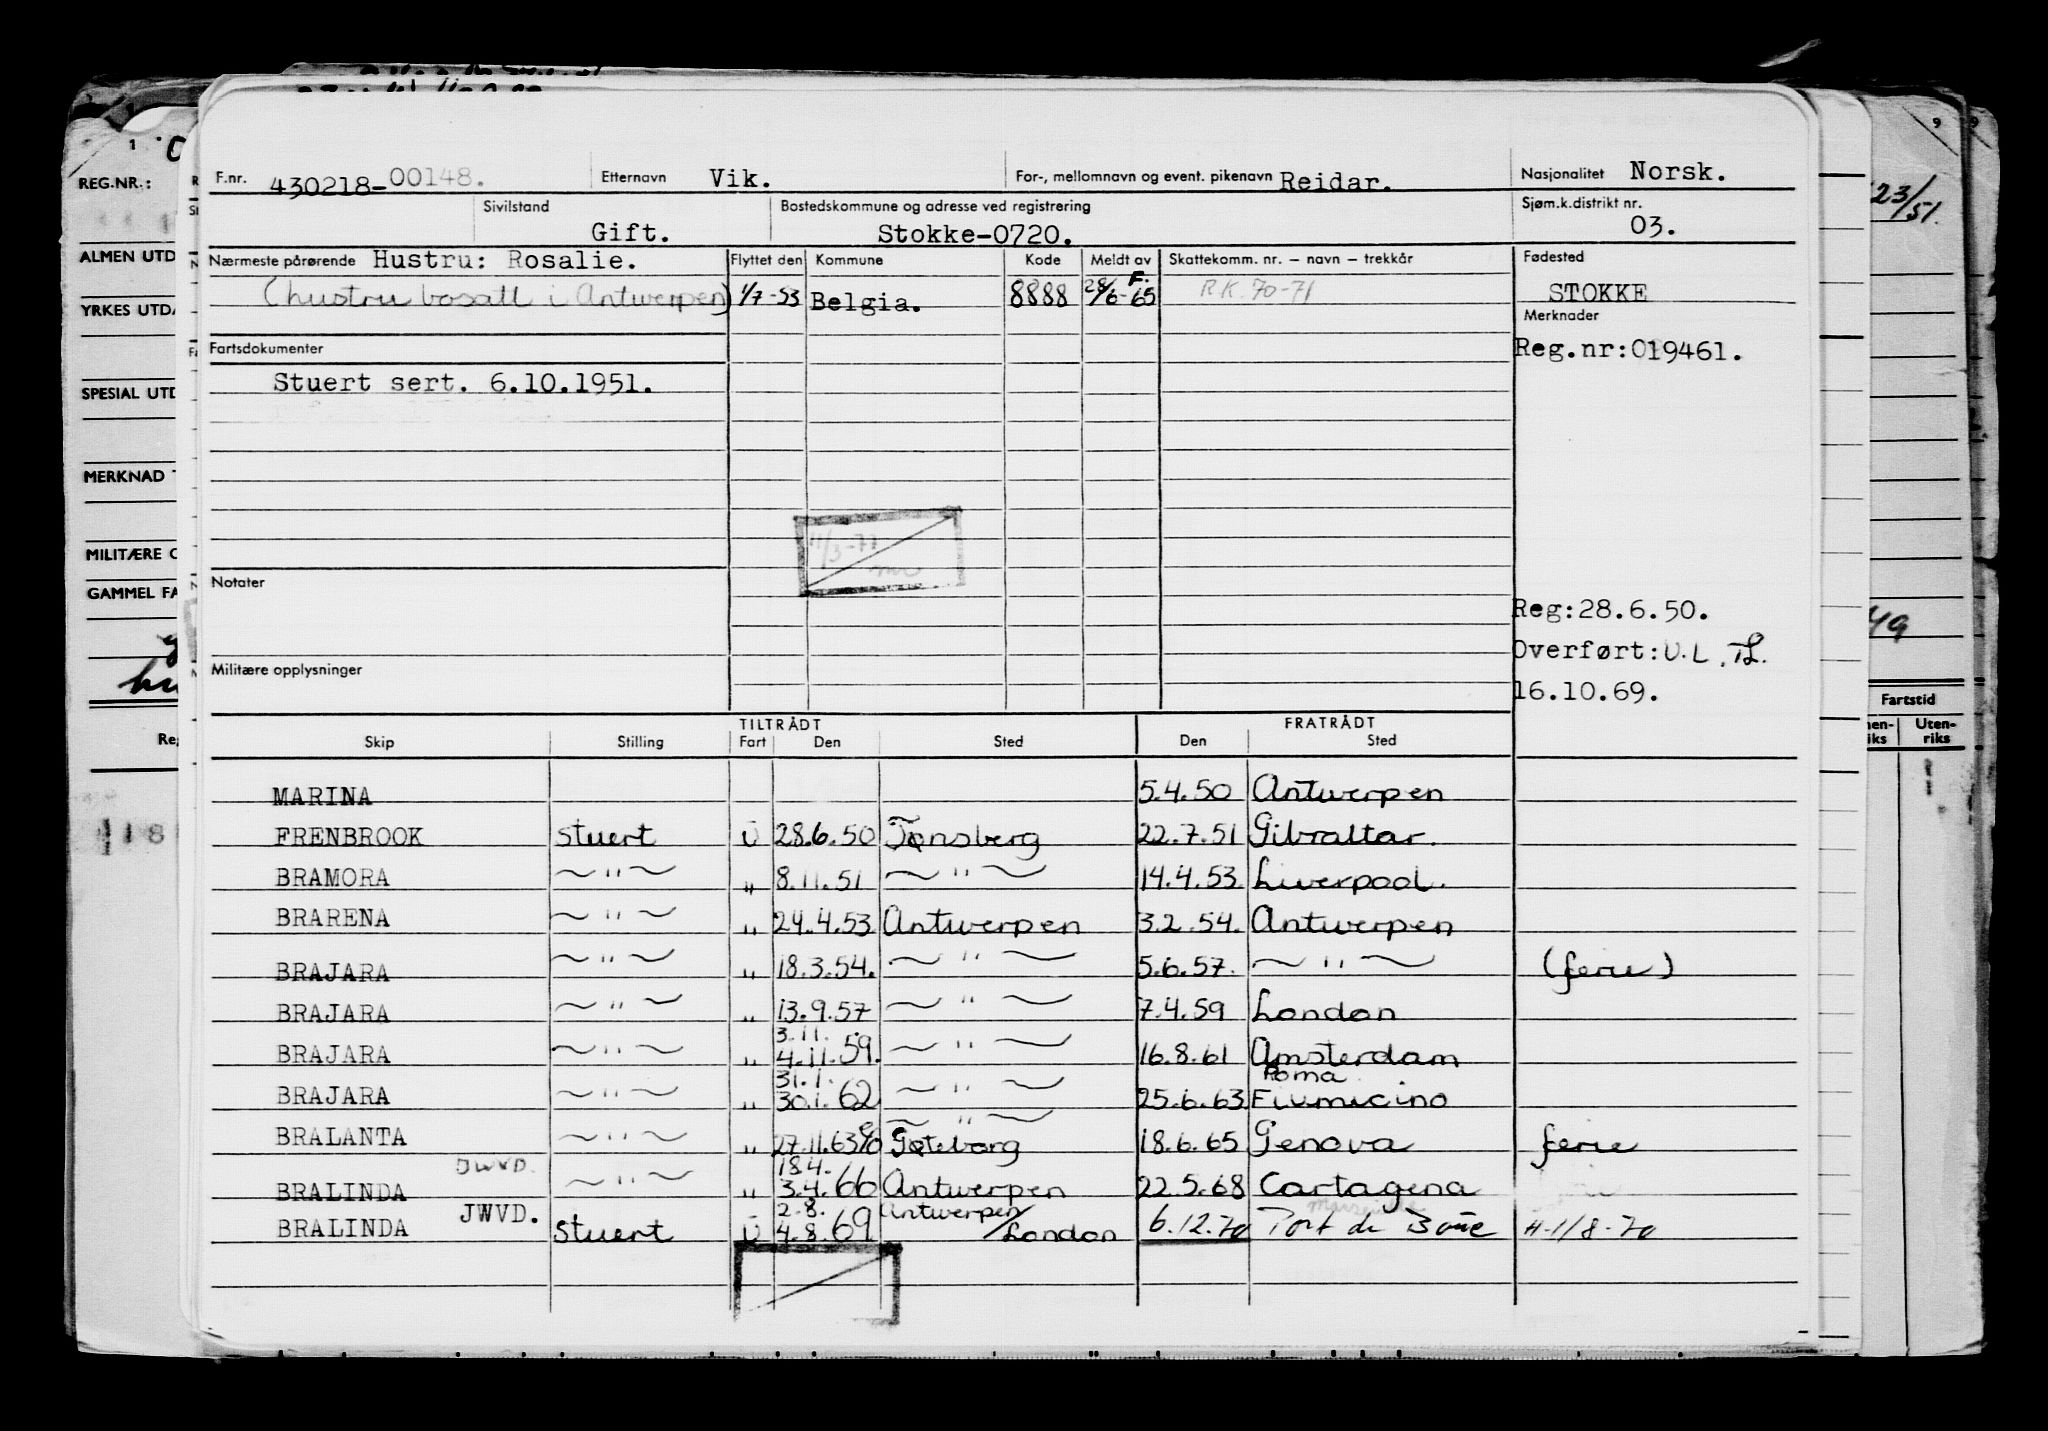 F.nr. 430218-00148. Etternavn Vik. For-, mellomnavn og event. pikenavn Reidar. Nasjonalitet Norsk.
Sivilstand Gift. Bostedskommune og adresse ved registrering Stokke-0720. Sjøm.k.distrikt nr. 03.
Nærmeste pårørende Hustru: Rosalie. Flyttet den Kommune Kode Meldt av Skattekomm. nr. – navn – trekkår Fødested
(hustru bosatt i Antwerpen) 1/7-53 Belgia. 8888 28/6-65 F. R.K. 70-71 STOKKE
Merknader
Fartsdokumenter Reg.nr:019461.
Stuert sert. 6.10.1951.
11/3-77
Notater
Reg:28.6.50.
Overført:U.L.
Militære opplysninger
16.10.69.
TILTRÅDT FRATRÅDT
Skip Stilling Fart Den Sted Den Sted
MARINA 5.4.50 Antwerpen
FRENBROOK stuert U 28.6.50 Tønsberg 22.7.51 Gibraltar.
BRAMORA " " 8.11.51 " 14.4.53 Liverpool.
BRARENA " " 24.4.53 Antwerpen 3.2.54. Antwerpen
BRAJARA " " 18.3.54. " 5.6.57. " (ferie)
BRAJARA " " 13.9.57 " 7.4.59 London
3.11.
BRAJARA " " 4.11.59. " 16.8.61 Amsterdam
31.1. Roma
BRAJARA " " 30.1.62 " 25.6.63 Fiumicino
"
BRALANTA " " 27.11.63 Gøteborg 18.6.65 Genova ferie
JWVD. 18.4.
BRALINDA " " 3.4.66 Antwerpen 22.5.68 Cartagena
2.8. Antwerpen/ Marseille
BRALINDA JWVD. stuert U 4.8.69 London 6.12.70 Port de Bouc H-1/8-70
REG.NR.:
ALMEN UTD
YRKES UTD
SPESIAL UTD
MERKNAD
MILITÆRE
GAMMEL
1
9
9
23/51.
49
Fartstid
Uten-
riks